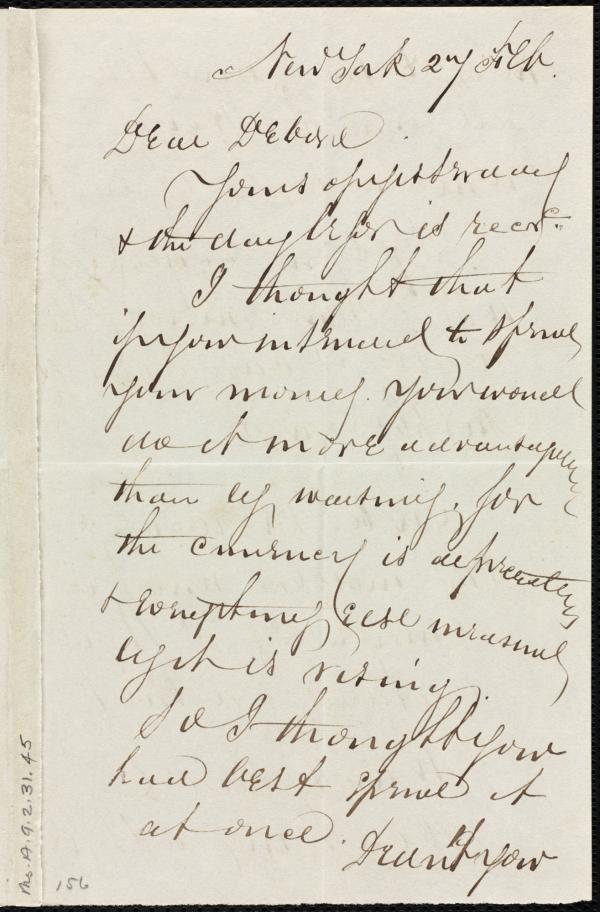 New York 27 Feb.
Dear Debora
Yours of yesterday
& the day before is recd.
I thought that
if you intended to spend
your money. You would
do it more advantageously
than by waiting, for
the currency is depreciating
& everything else measured
by it is rising.
So I thought you
had best spend it
at once. Dear[n't] you
Ms. A. 9. 2. 31. 45
156